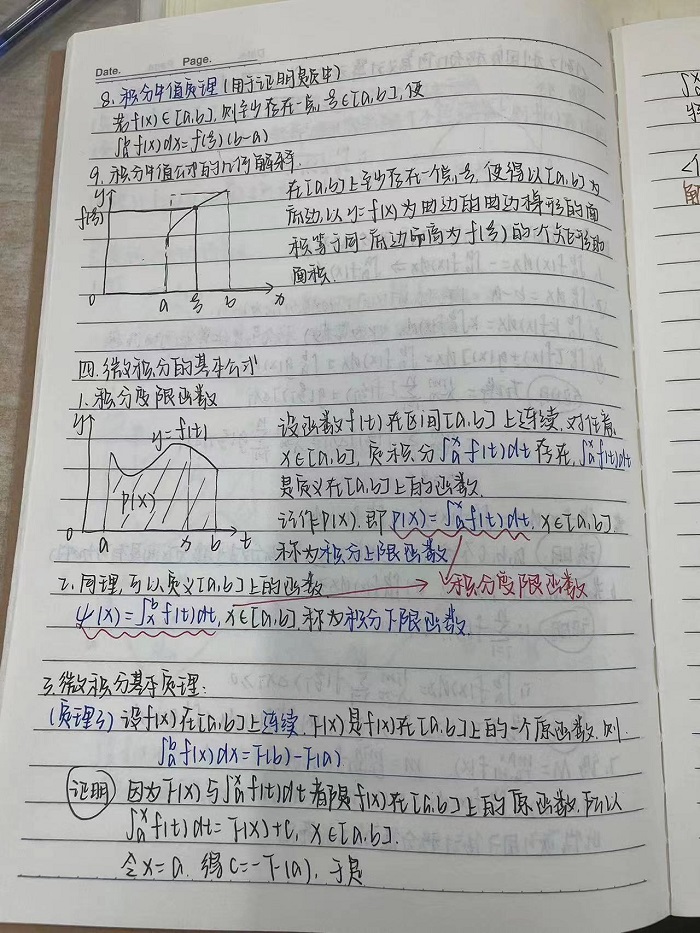 Date. Page.
8. 积分中值定理(用于证明题中)
若f(x)∈[a,b], 则至少存在一点ξ∈[a,b], 使
∫ₐᵇ f(x)dx=f(ξ)(b-a)
9. 积分中值公式的几何解释.
y
f(ξ)
0 a ξ b x
在[a,b]上至少存在一个点ξ, 使得以[a,b]为
底边, 以y=f(x)为曲边的曲边梯形的面
积等于同一底边而高为f(ξ)的一个矩形的
面积.
四. 微积分的基本公式
1. 积分变限函数
y y=f(t)
P(X)
0 a x b t
设函数f(t)在区间[a,b]上连续, 对任意
x∈[a,b], 定积分∫ₐˣf(t)dt存在, ∫ₐˣf(t)dt
是定义在[a,b]上的函数.
记作P(X). 即 P(X)=∫ₐˣf(t)dt, x∈[a,b]
称为积分上限函数
2. 同理, 可以定义[a,b]上的函数 积分变限函数
ψ(x)=∫ₓᵇf(t)dt, x∈[a,b], 称为积分下限函数.
3. 微积分基本定理:
(定理3) 设f(x)在[a,b]上连续. F(x)是f(x)在[a,b]上的一个原函数. 则
∫ₐᵇf(x)dx=F(b)-F(a)
证明 因为F(x)与∫ₐˣf(t)dt都是f(x)在[a,b]上的原函数, 所以
∫ₐˣf(t)dt=F(x)+C, x∈[a,b].
令x=a. 得C=-F(a), 于是